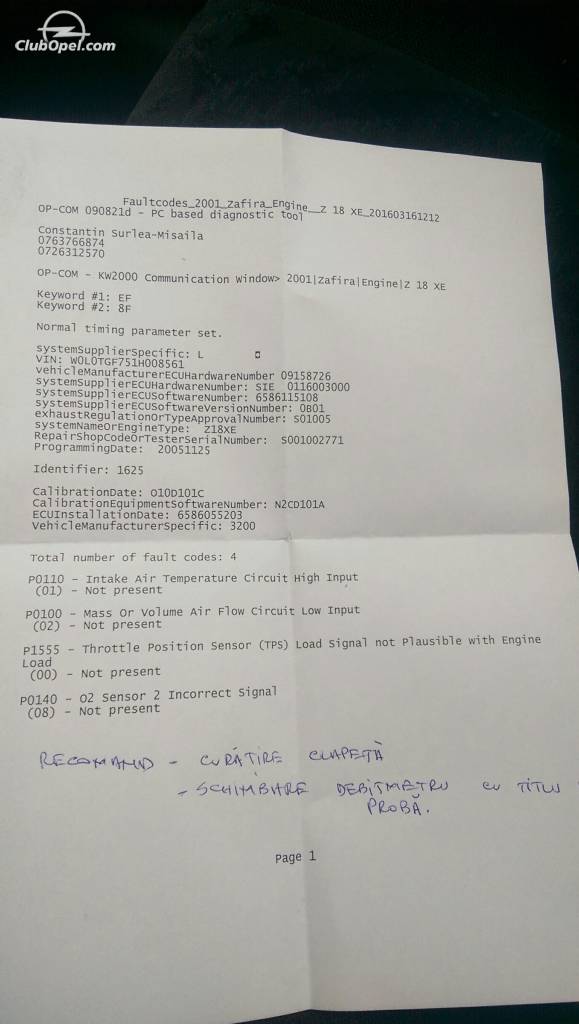 ClubOpel.com
Faultcodes_2001_Zafira_Engine__Z 18 XE_201603161212
OP-COM 090821d - PC based diagnostic tool
Constantin Surlea-Misaila
0763766874
0726312570
OP-COM - KW2000 Communication Window> 2001|Zafira|Engine|Z 18 XE
Keyword #1: EF
Keyword #2: 8F
Normal timing parameter set.
systemSupplierSpecific: L
VIN: W0L0TGF751H008561
vehicleManufacturerECUHardwareNumber 09158726
systemSupplierECUHardwareNumber: SIE 0116003000
systemSupplierECUSoftwareNumber: 6586115108
systemSupplierECUSoftwareVersionNumber: 0B01
exhaustRegulationOrTypeApprovalNumber: S01005
systemNameOrEngineType: Z18XE
RepairShopCodeOrTesterSerialNumber: S001002771
ProgrammingDate: 20051125
Identifier: 1625
CalibrationDate: 010D101C
CalibrationEquipmentSoftwareNumber: N2CD101A
ECUInstallationDate: 6586055203
VehicleManufacturerSpecific: 3200
Total number of fault codes: 4
P0110 - Intake Air Temperature Circuit High Input
(01) - Not present
P0100 - Mass Or Volume Air Flow Circuit Low Input
(02) - Not present
P1555 - Throttle Position Sensor (TPS) Load Signal not Plausible with Engine
Load
(00) - Not present
P0140 - O2 Sensor 2 Incorrect Signal
(08) - Not present
RECOMAND - CURĂȚIRE CLAPETĂ
- SCHIMBARE DEBITMETRU CU TITLU
PROBĂ.
Page 1